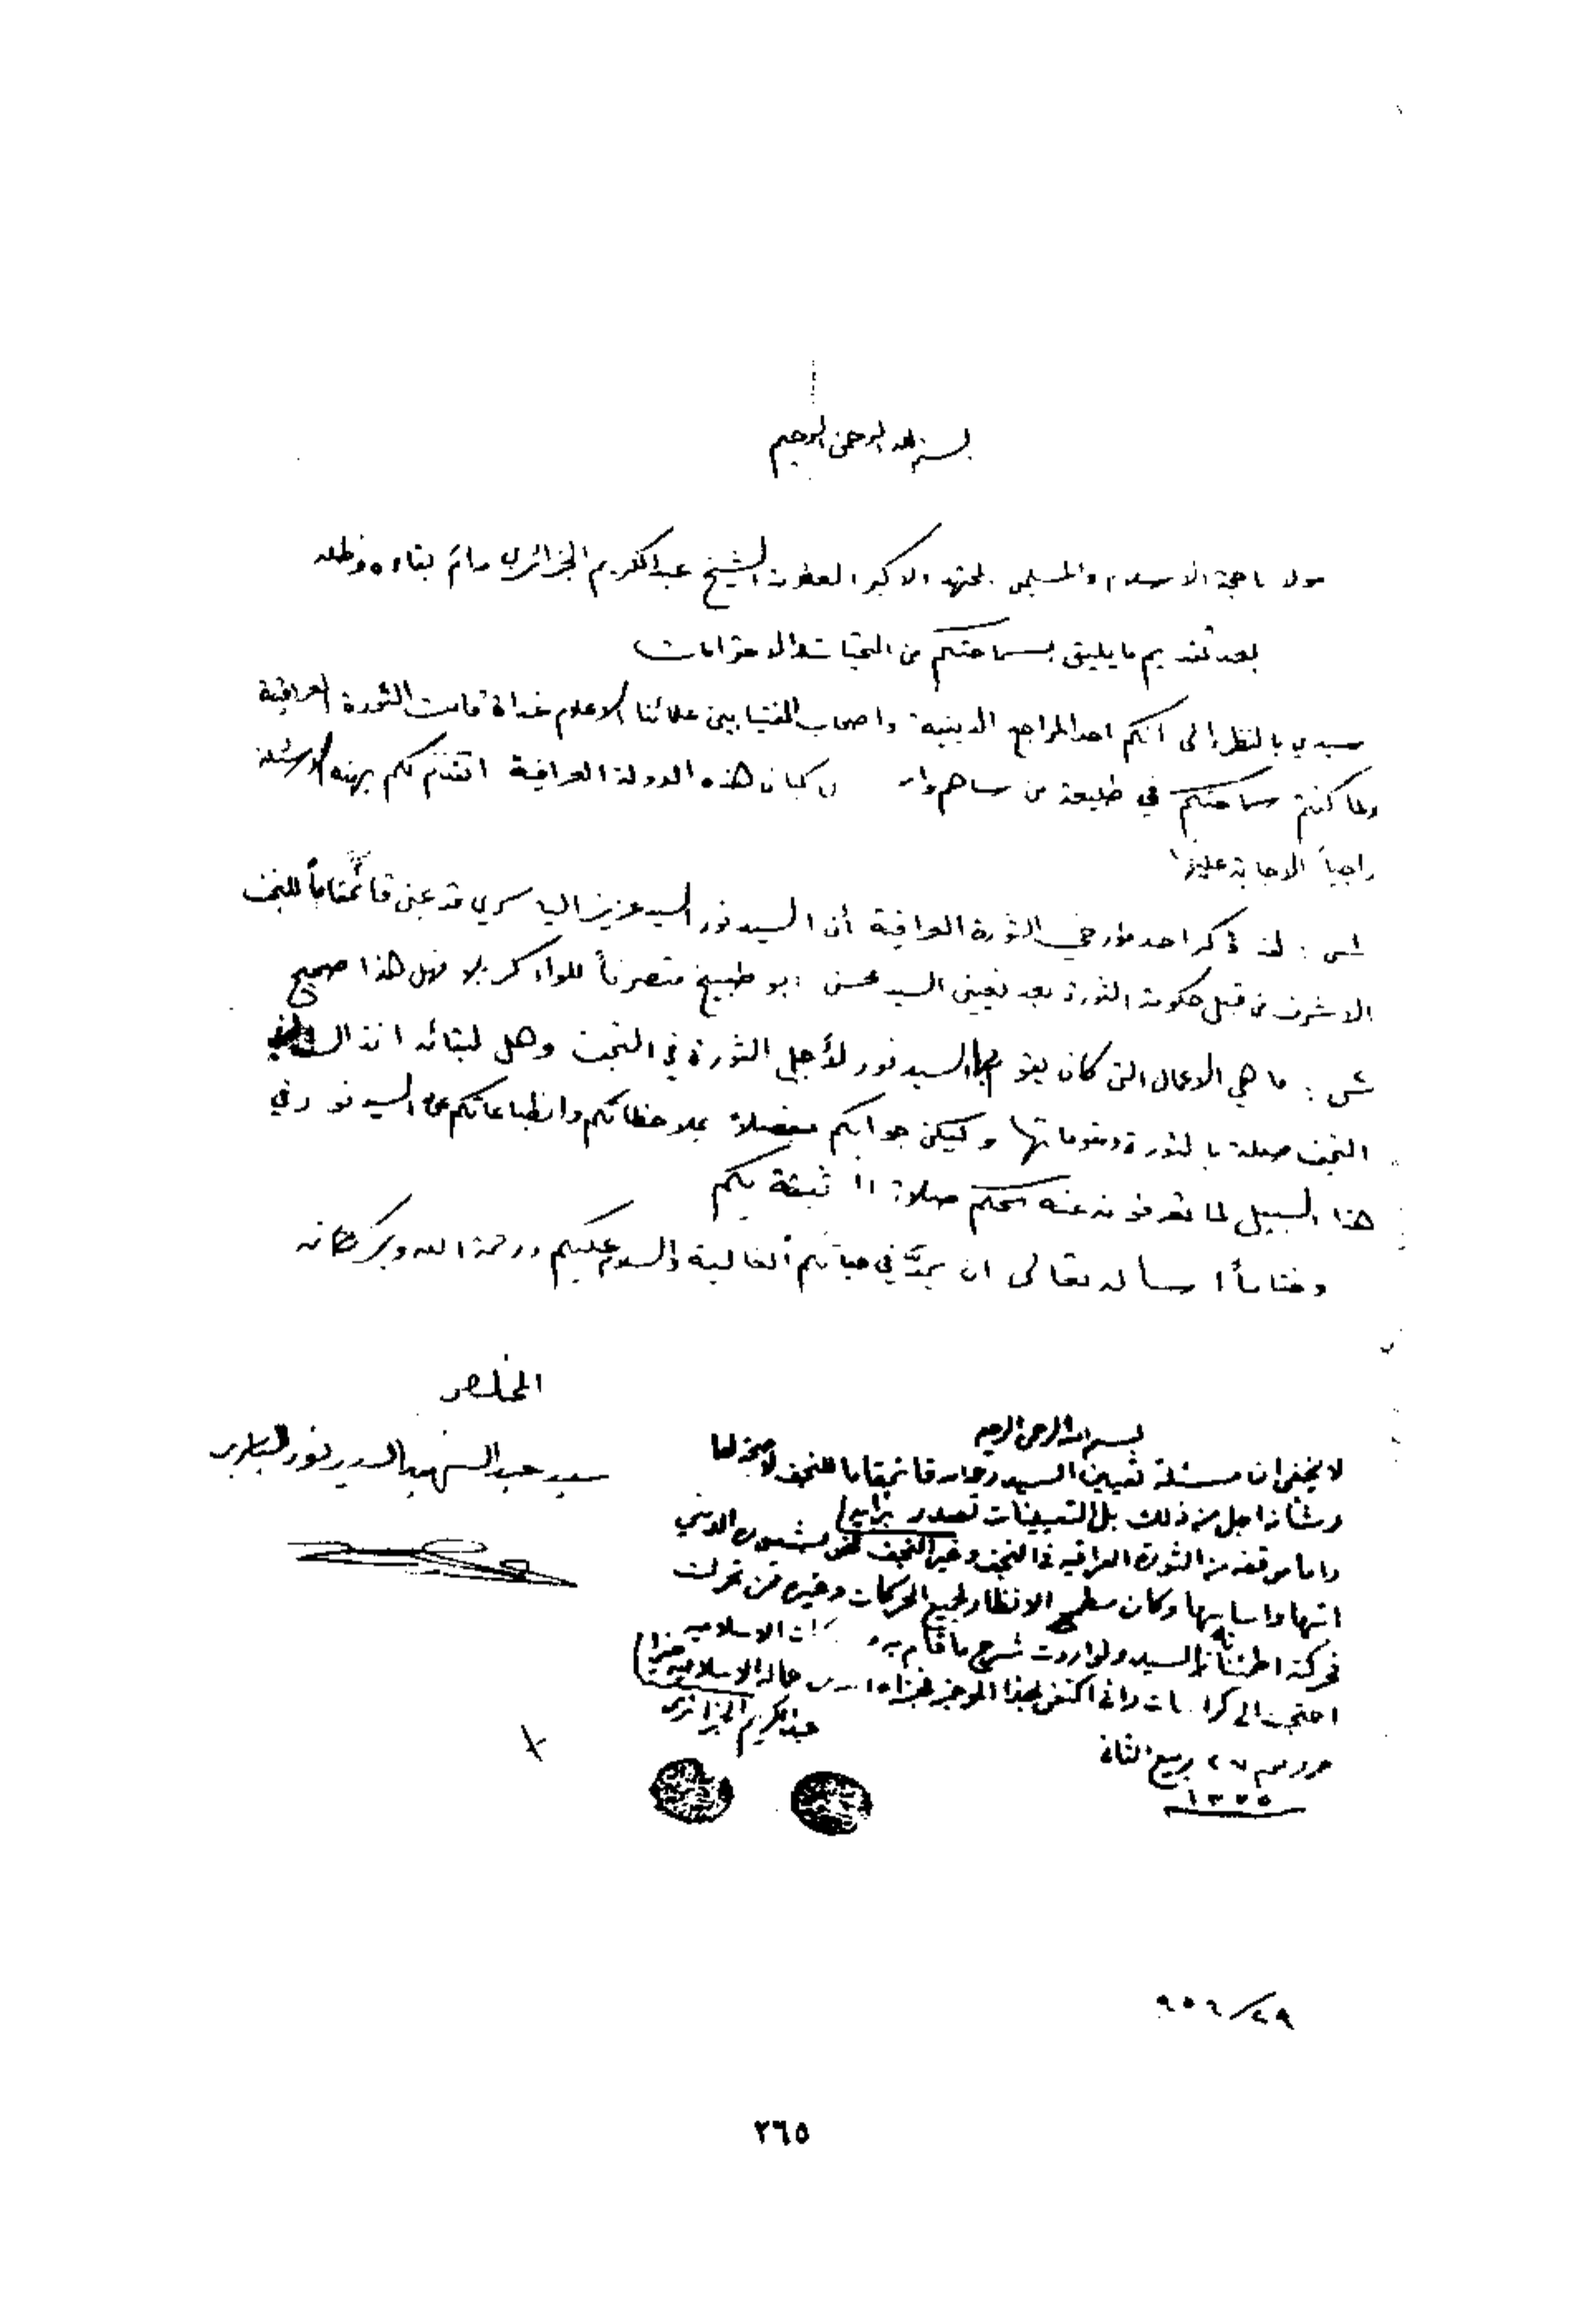 بسم الله الرحمن الرحيم
مولانا حجة الاسلام والمسلمين المجتهد الاكبر الشيخ عبدالكريم الجزائري دام بقاءه وظله
بعد تقديم ما يليق بسماحتكم من التحيات والاحترامات
سيدي بالنظر الى انكم احد المراجع الدينية واصحاب الفتيا بين علمائنا الاعلام غداة قامت الثورة العراقية
ولما كنتم سماحتكم في طليعة من ساهم كيان هذه الدولة العراقية اتقدم لكم بهذه الاسئلة
راجياً الاجابة عليها
س : لقد ذكر احد مؤرخي الثورة العراقية أن السيد نور السيد عزيز الياسري قد عين قائمقاماً للنجف
الاشرف من قبل حكومة الثورة بعد تعيين السيد محسن ابو طبيخ متصرفاً للواء كربلا فهل هذا صحيح
س : ما هي الاعمال التي كان يقوم بها السيد نور لأجل الثورة في النجف وهل لبقائه انذاك في
النجف صلة بالثورة ومقوماتها وليكن جوابكم مفصلا بملاحظاتكم وانطباعاتكم عن السيد نور في
هذا السبيل لما تعرفونه عنه بحكم صلاته الوثيقة بكم
وختاماً اسأله تعالى ان يمد في حياتكم الغالية والسلام عليكم ورحمة الله وبركاته
المخلص
سيد عبد الشهيد السيد نور الياسري
بسم الله الرحمن الرحيم
لا يخفى ان مسئلة تعيين السيد قائمقاما للنجف لا صحة لها
وشأنه اجل من ذلك بل التعيينات تصدر برأيه
واما موقفه من الثورة العراقيه في النجف وغير النجف فهو الديني
وكان مطمح الانظار لجميع الحركات وغيره من تحرك
فحركته السيد ولو اردت شرح ما قام به الاسلاميه
احتجت الى كراسات واني اكتفي بهذا الموجز فجزاه الله عن الاسلاميه خيرا
عبدالكريم الجزائري
حرر يوم ٢٧ ربيع الثاني
١٣٧٥
٢٩/ ٩٥٦
٢٦٥